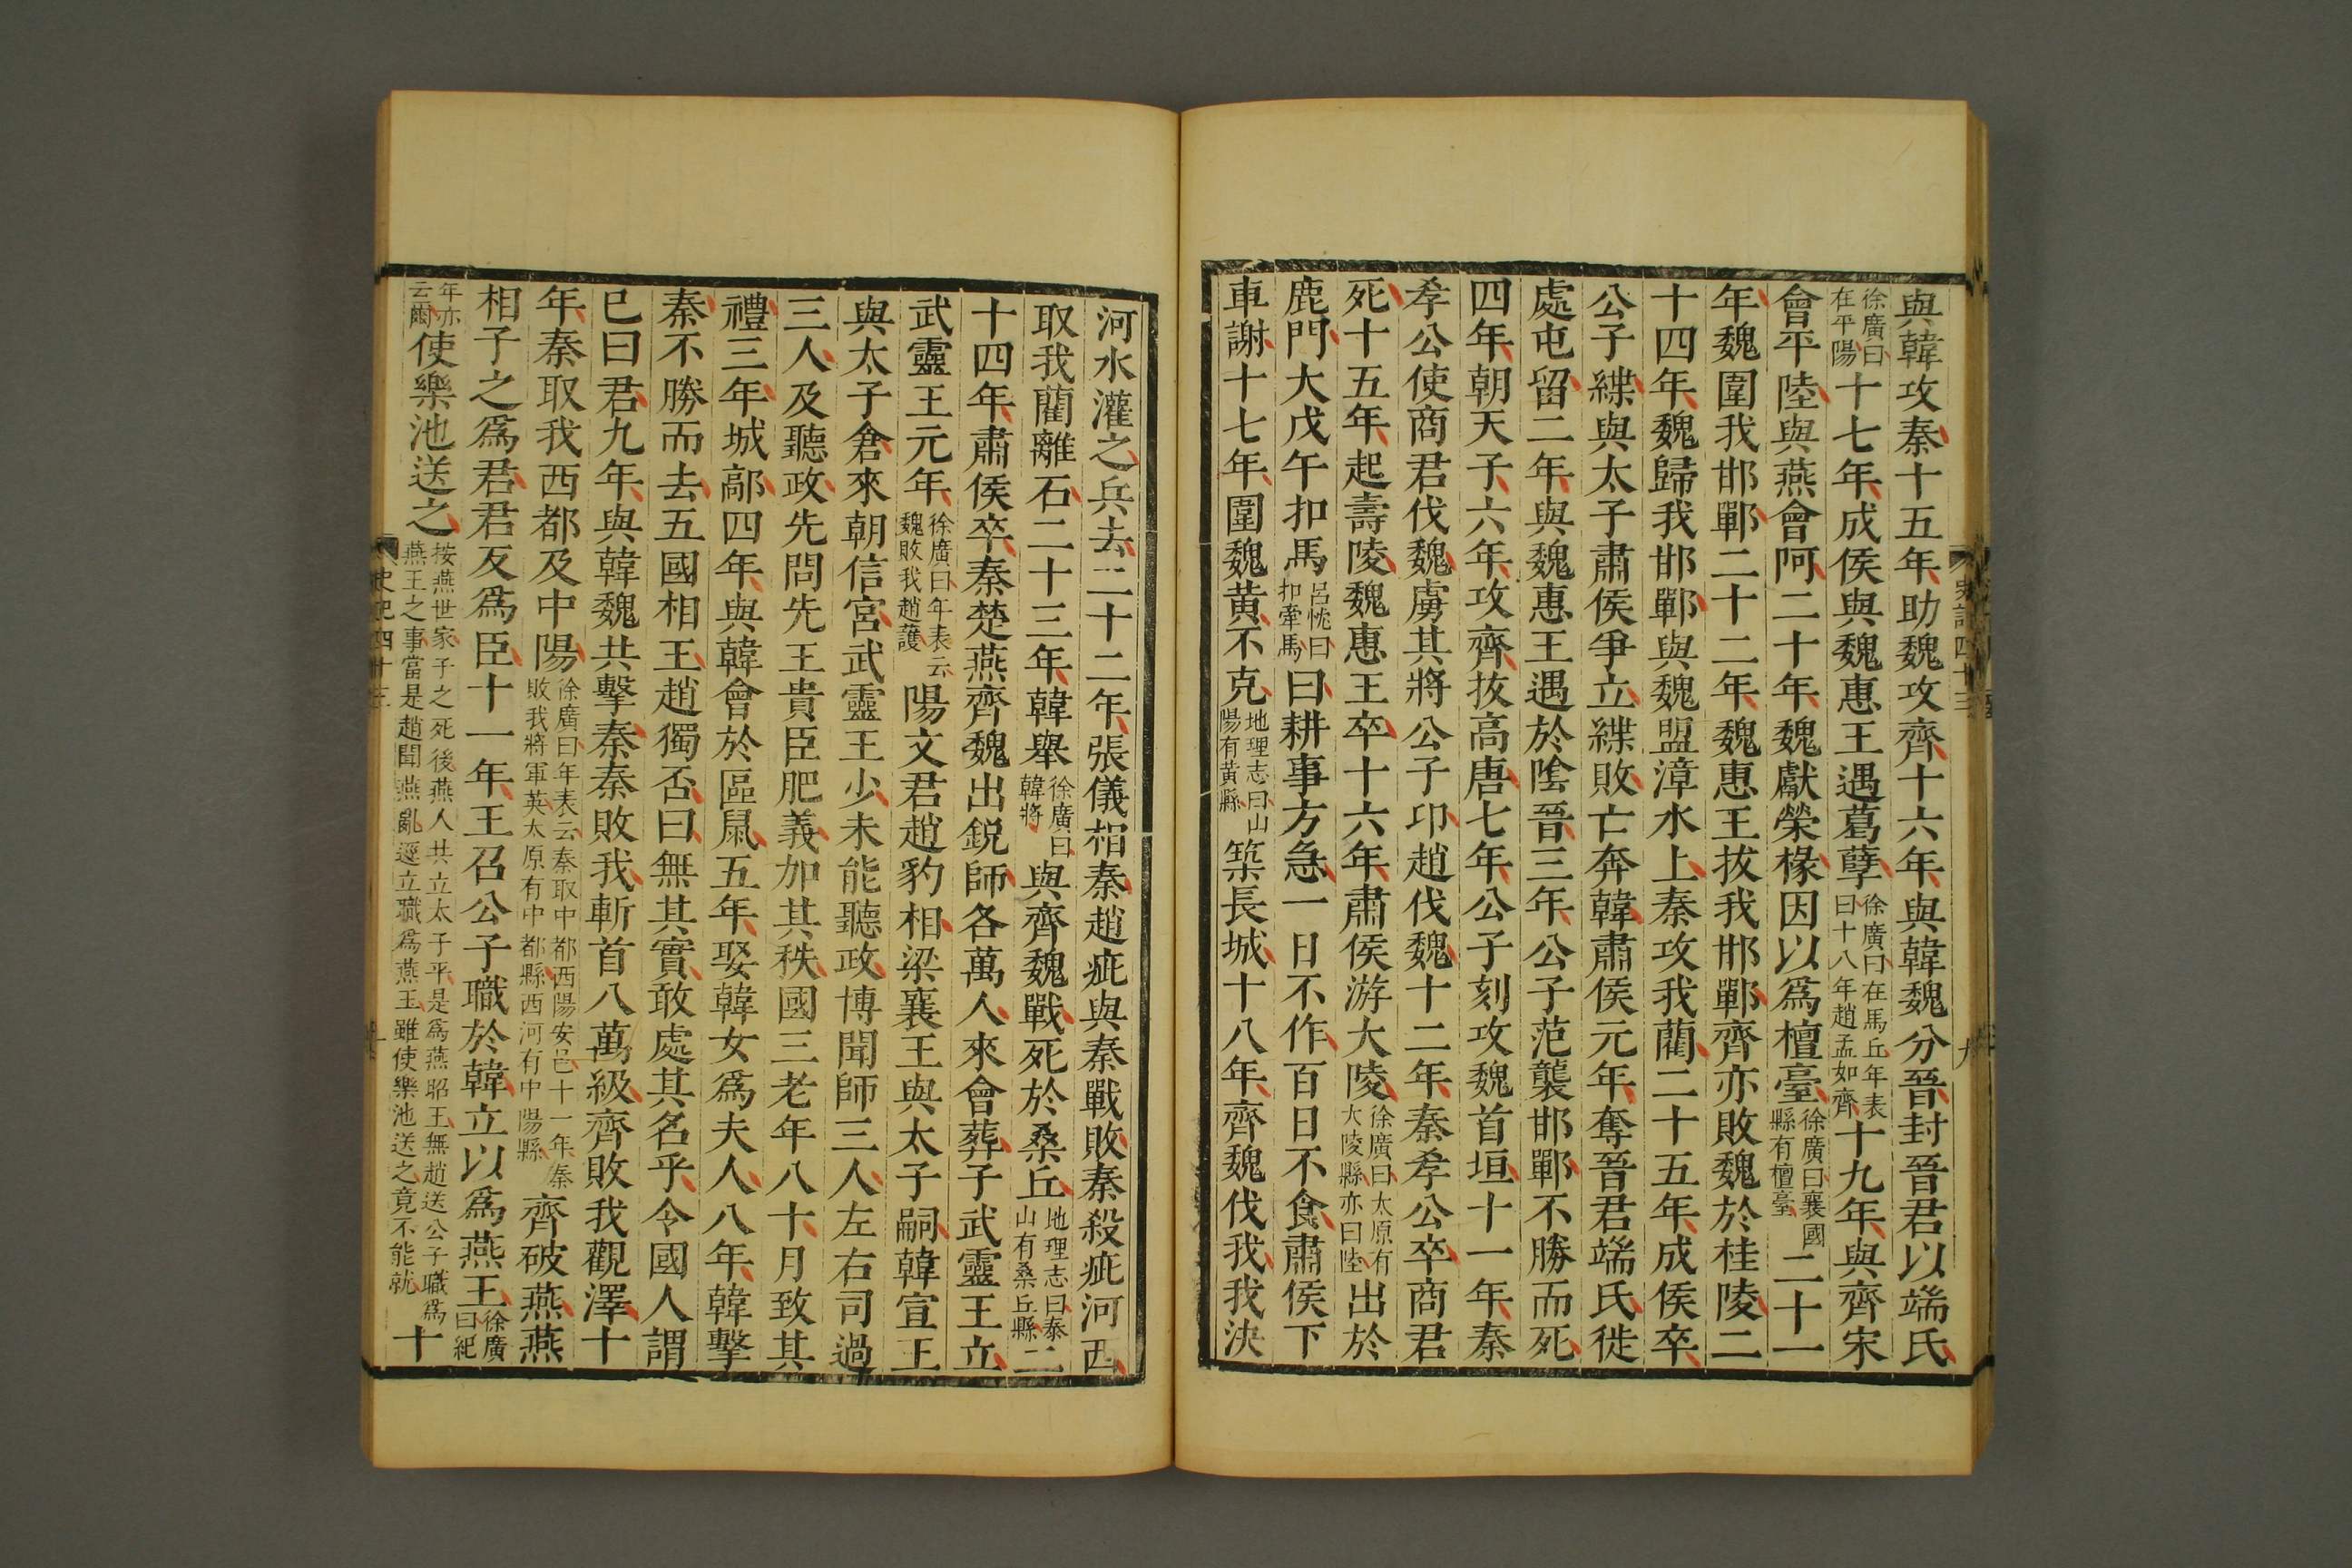 與韓攻秦十五年助魏攻齊十六年與韓魏分晉封晉君以端氏
徐廣曰在平陽十七年成侯與魏惠王遇葛孽徐廣曰在馬丘年表曰十八年趙孟如齊十九年與齊宋
會平陸與燕會阿二十年魏獻榮椽因以爲檀臺徐廣曰襄國縣有檀臺二十一
年魏圍我邯鄲二十二年魏惠王拔我邯鄲齊亦敗魏於桂陵二
十四年魏歸我邯鄲與魏盟漳水上秦攻我藺二十五年成侯卒
公子緤與太子肅侯爭立緤敗亡奔韓肅侯元年奪晉君端氏徙
處屯留二年與魏惠王遇於陰晉三年公子范襲邯鄲不勝而死
四年朝天子六年攻齊拔高唐七年公子刻攻魏首垣十一年秦
孝公使商君伐魏虜其將公子卬趙伐魏十二年秦孝公卒商君
死十五年起壽陵魏惠王卒十六年肅侯游大陵徐廣曰太原有大陵縣亦曰陸出於
鹿門大戊午扣馬呂忱曰扣牽馬曰耕事方急一日不作百日不食肅侯下
車謝十七年圍魏黄不克地理志曰山陽有黄縣築長城十八年齊魏伐我我決
河水灌之兵去二十二年張儀相秦趙疵與秦戰敗秦殺疵河西
取我藺離石二十三年韓舉徐廣曰韓將與齊魏戰死於桑丘地理志曰泰山有桑丘縣二
十四年肅侯卒秦楚燕齊魏出鋭師各萬人來會葬子武靈王立
武靈王元年徐廣曰年表云魏敗我趙護陽文君趙豹相梁襄王與太子嗣韓宣王
與太子倉來朝信宮武靈王少未能聽政博聞師三人左右司過
三人及聽政先問先王貴臣肥義加其秩國三老年八十月致其
禮三年城鄗四年與韓會於區鼠五年娶韓女爲夫人八年韓擊
秦不勝而去五國相王趙獨否曰無其實敢處其名乎令國人謂
已曰君九年與韓魏共擊秦秦敗我斬首八萬級齊敗我觀澤十
年秦取我西都及中陽徐廣曰年表云秦取中都西陽安邑十一年秦敗我將軍英太原有中都縣西河有中陽縣齊破燕燕
相子之爲君君反爲臣十一年王召公子職於韓立以爲燕王徐廣曰紀
年亦云爾使樂池送之按燕世家子之死後燕人共立太子平是爲燕昭王無趙送公子職爲燕王之事當是趙聞燕亂遥立職爲燕王雖使樂池送之竟不能就十
史記四十三